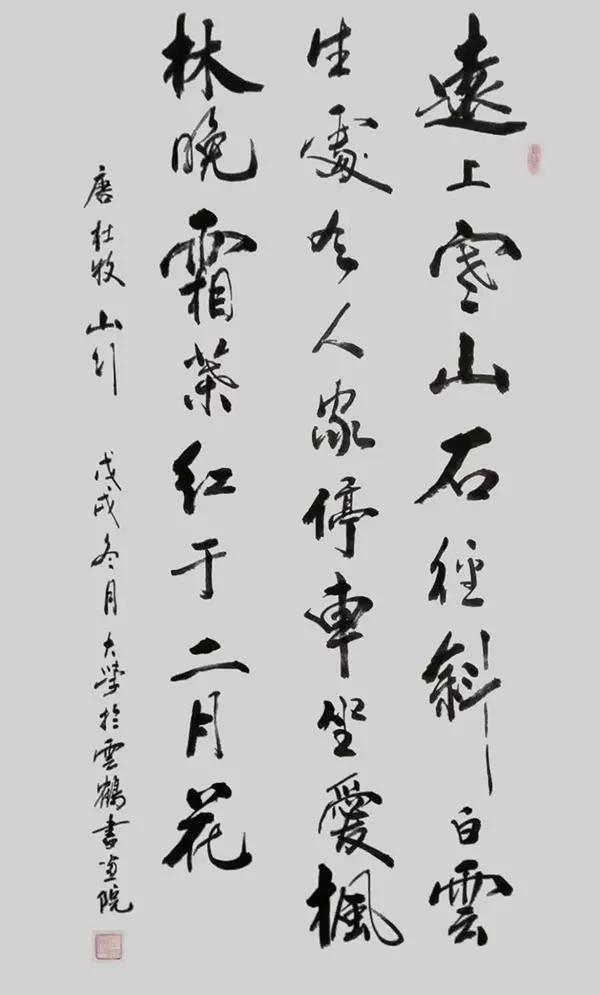 遠上寒山石徑斜白雲
生處有人家停車坐愛楓
林晚霜葉紅于二月花
唐杜牧山行 戊戌冬月大學於雲鶴書画院